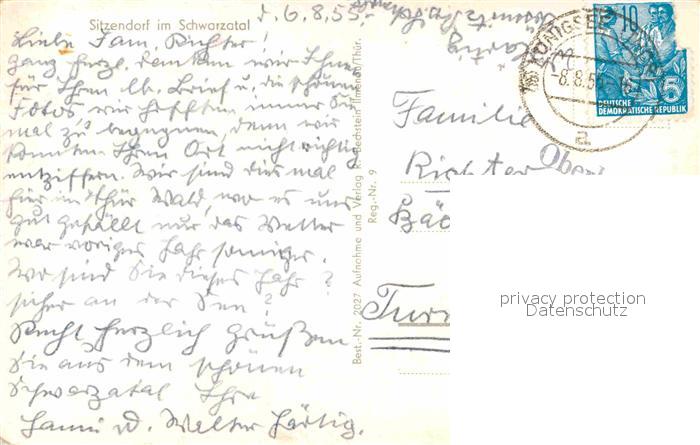 Sitzendorf im Schwarzatal
d. 6.8.55.
Liebe Fam. Richter!
Ganz herzl. danken wir Ihnen
für Ihren lb. Brief u. die schönen
Fotos, wir hofften immer Sie
mal zu begegnen, denn wir
konnten Ihren Ort nicht richtig
entziffern. Wir sind diesmal
für im Thür Wald, wo es uns
gut gefällt nur das Wetter
war voriges Jahr sonniger.
Wo sind Sie dieses Jahr?
sicher an der See?
Recht herzlich grüßen
Sie aus dem schönen
Schwarzatal Ihre
Hanni u. Walter Härtig.
Best.-Nr. 2027 Aufnahme und Verlag R. Bechstein Ilmenau/Thür.
Reg.-Nr. 9
Härtig
KÖNIGSEE
-8.8.5
a
10
5
DEUTSCHE
DEMOKRATISCHE REPUBLIK
Familie
Richter
Ober
Bäc
Turn
privacy protection
Datenschutz